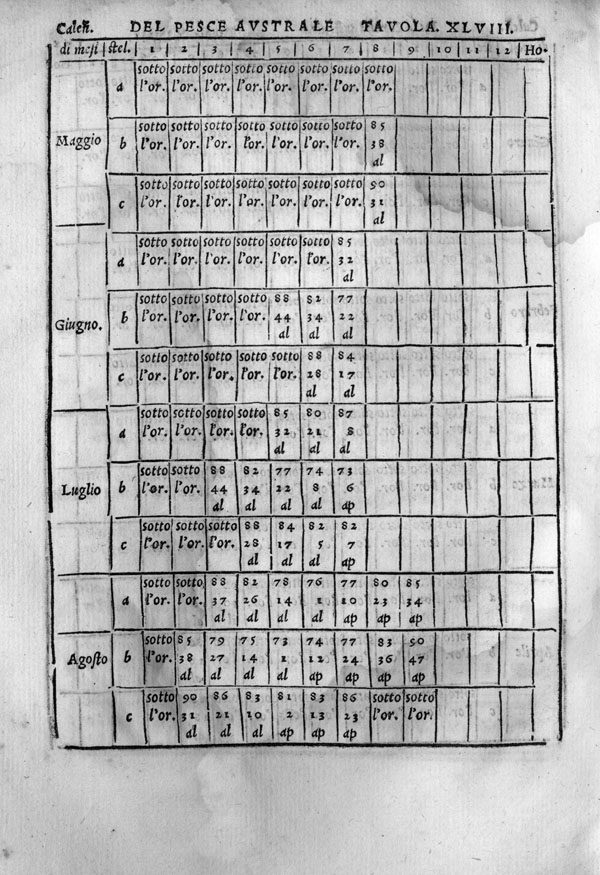 Caleñ. DEL PESCE AVSTRALE TAVOLA. XLVIII.
di mesi stel. 1 2 3 4 5 6 7 8 9 10 11 12 Ho.
sotto sotto sotto sotto sotto sotto sotto sotto
a l'or. l'or. l'or. l'or. l'or. l'or. l'or. l'or.
sotto sotto sotto sotto sotto sotto sotto 85
Maggio b l'or. l'or. l'or. l'or. l'or. l'or. l'or. 38
al
sotto sotto sotto sotto sotto sotto sotto 90
c l'or. l'or. l'or. l'or. l'or. l'or. l'or. 31
al
sotto sotto sotto sotto sotto sotto 85
a l'or. l'or. l'or. l'or. l'or. l'or. 32
al
sotto sotto sotto sotto 88 82 77
Giugno. b l'or. l'or. l'or. l'or. 44 34 22
al al al
sotto sotto sotto sotto sotto 88 84
c l'or. l'or. l'or. l'or. l'or. 28 17
al al
sotto sotto sotto sotto 85 80 87
a l'or. l'or. l'or. l'or. 32 21 8
al al al
sotto sotto 88 82 77 74 73
Luglio b l'or. l'or. 44 34 22 8 6
al al al al ap
sotto sotto sotto 88 84 82 82
c l'or. l'or. l'or. 28 17 5 7
al al al ap
sotto sotto 88 82 78 76 77 80 85
a l'or. l'or. 37 26 14 1 10 23 34
al al al al ap ap ap
sotto 85 79 75 73 74 77 83 90
Agosto b l'or. 38 27 14 1 12 24 36 47
al al al al ap ap ap ap
sotto 90 86 83 81 83 86 sotto sotto
c l'or. 31 21 10 2 13 23 l'or. l'or.
al al al ap ap ap